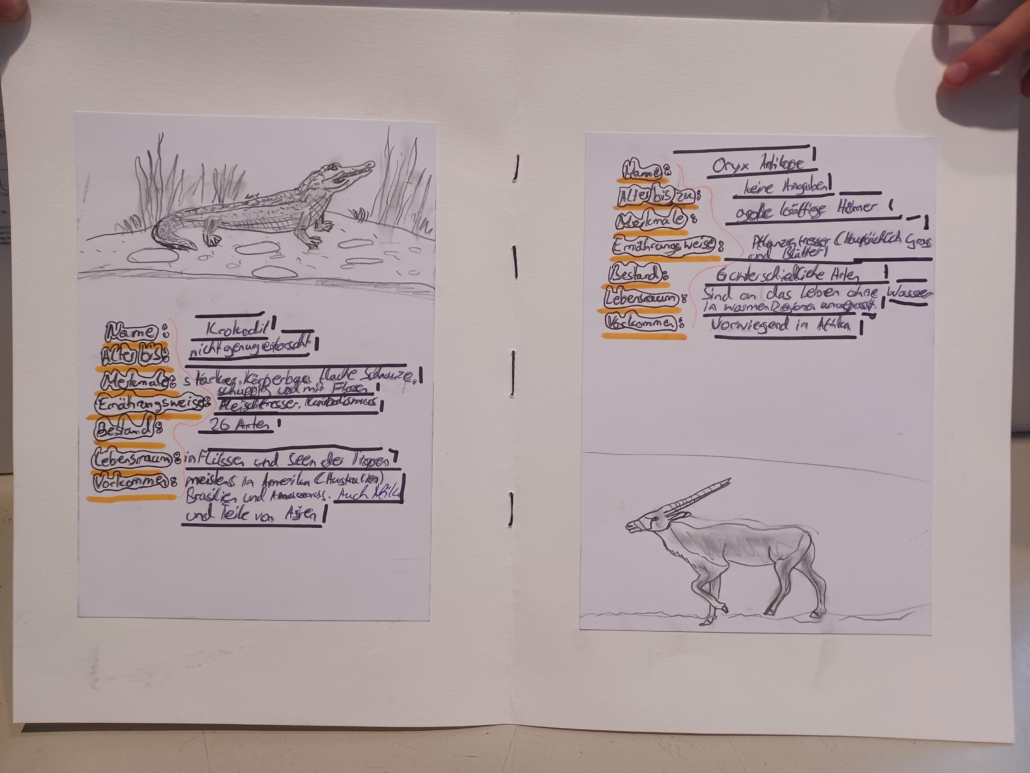 Name: Krokodil
Alter bis: nicht genug erforscht
Merkmale: starker Körperbau, flache Schnauze,
schuppig und mit
Ernährungsweise: Fleischfresser, Kanibalismus
Bestand: 26 Arten
Lebensraum: in Flüssen und Seen der Tropen
Vorkommen: meistens in Amerika (Australien)
Brasilien und Auch
und Teile von Asien
Name: Oryx Antilope
Alter bis zu: keine Angaben
Merkmale: große kräftige Hörner
Ernährungsweise: Pflanzenfresser (Hauptsächlich Gras
und Blätter)
Bestand: 6 unterschiedliche Arten
Lebensraum: Sind an das Leben ohne Wasser
in warmen Regionen angepasst.
Vorkommen: Vorwiegend in Afrika